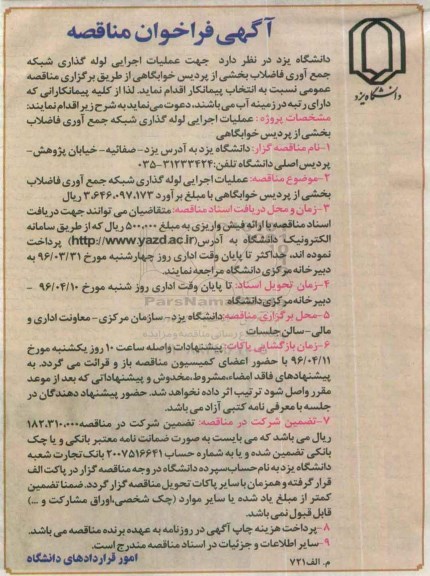 آگهی فراخوان مناقصه
دانشگاه یزد
دانشگاه یزد در نظر دارد جهت عملیات اجرایی لوله گذاری شبکه
جمع آوری فاضلاب بخشی از پردیس خوابگاهی از طریق برگزاری مناقصه
عمومی نسبت به انتخاب پیمانکار اقدام نماید. لذا از کلیه پیمانکارانی که
دارای رتبه در زمینه آب می باشند، دعوت می نماید به شرح زیر اقدام نمایند:
مشخصات پروژه: عملیات اجرایی لوله گذاری شبکه جمع آوری فاضلاب
بخشی از پردیس خوابگاهی
۱-نام مناقصه گزار: دانشگاه یزد به آدرس یزد- صفائیه- خیابان پژوهش-
پردیس اصلی دانشگاه تلفن: ۳۱۲۳۳۴۲۴-۰۳۵
۲-موضوع مناقصه: عملیات اجرایی لوله گذاری شبکه جمع آوری فاضلاب
بخشی از پردیس خوابگاهی با مبلغ برآورد ۳،۶۴۶،۰۹۷،۱۷۳ ریال
۳-زمان و محل دریافت اسناد مناقصه: متقاضیان می توانند جهت دریافت
اسناد مناقصه با ارائه فیش واریزی به مبلغ ۵۰۰،۰۰۰ ریال که از طریق سامانه
الکترونیک دانشگاه به آدرس (http://www.yazd.ac.ir) پرداخت
نموده اند، حداکثر تا پایان وقت اداری روز چهارشنبه مورخ ۹۶/۰۳/۳۱ به
دبیرخانه مرکزی دانشگاه مراجعه نمایند.
۴-زمان تحویل اسناد: تا پایان وقت اداری روز شنبه مورخ ۹۶/۰۴/۱۰ -
دبیرخانه مرکزی دانشگاه
۵-محل برگزاری مناقصه: دانشگاه یزد- سازمان مرکزی- معاونت اداری و
مالی- سالن جلسات
۶-زمان بازگشایی پاکات: پیشنهادات واصله ساعت ۱۰ روز یکشنبه مورخ
۹۶/۰۴/۱۱ با حضور اعضای کمیسیون مناقصه باز و قرائت می گردد. به
پیشنهادهای فاقد امضاء، مشروط، مخدوش و پیشنهاداتی که بعد از موعد
مقرر واصل شود ترتیب اثر داده نخواهد شد. حضور پیشنهاد دهندگان در
جلسه با معرفی نامه کتبی آزاد می باشد.
۷-تضمین شرکت در مناقصه: تضمین شرکت در مناقصه ۱۸۲،۳۱۰،۰۰۰
ریال می باشد که می بایست به صورت ضمانت نامه معتبر بانکی و یا چک
بانکی تضمین شده و یا به شماره حساب ۲۰۰۷۵۱۶۶۴۱ بانک تجارت شعبه
دانشگاه یزد به نام حساب سپرده دانشگاه در وجه مناقصه گزار در پاکت الف
قرار گرفته و همزمان با سایر پاکات تحویل مناقصه گزار گردد. ضمنا تضمین
کمتر از مبلغ یاد شده یا سایر موارد (چک شخصی، اوراق مشارکت و ...)
قابل قبول نمی باشد.
۸-پرداخت هزینه چاپ آگهی در روزنامه به عهده برنده مناقصه می باشد.
۹-سایر اطلاعات و جزئیات در اسناد مناقصه مندرج است.
م. الف ۷۲۱
امور قراردادهای دانشگاه